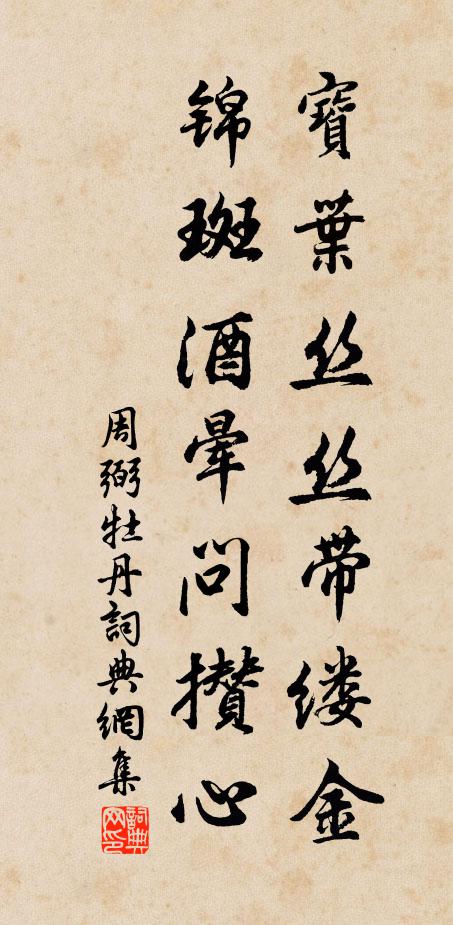 寶葉丝丝带缕金
锦斑酒晕问攢心
周弼牡丹詞典網集
詞典网印